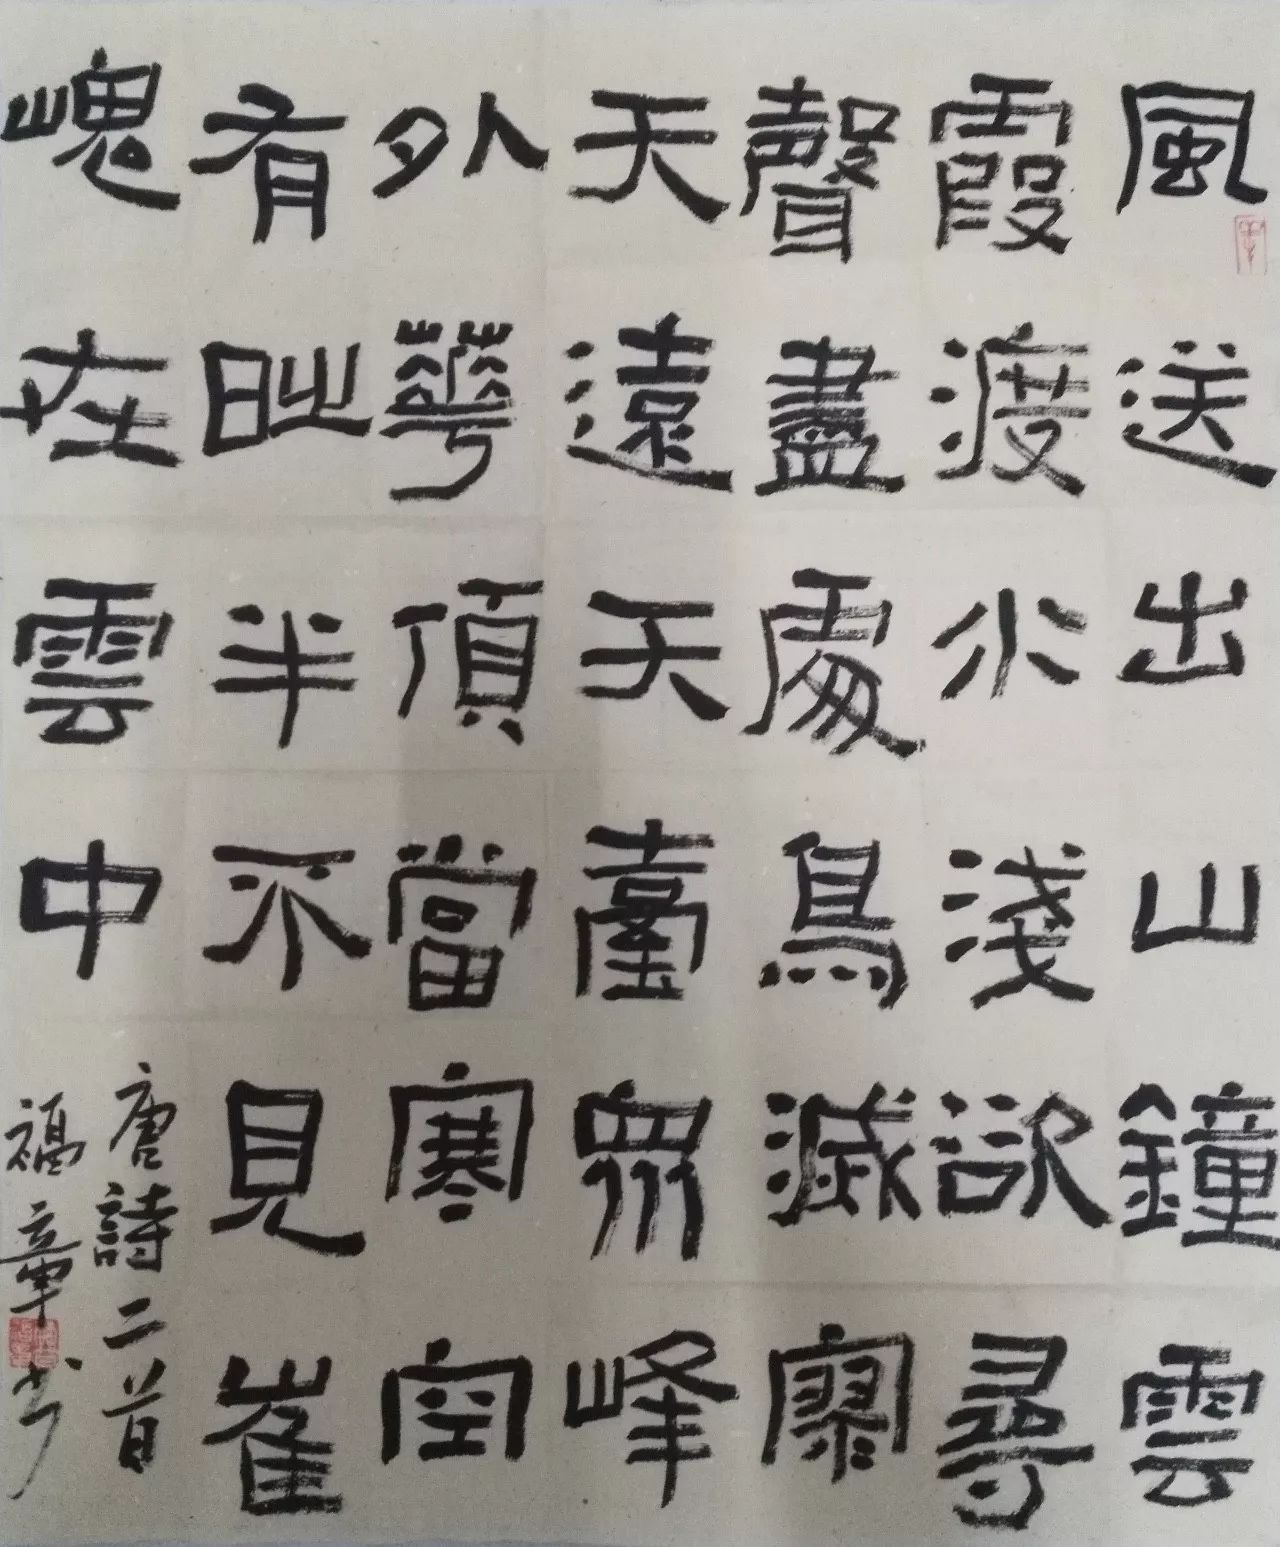 風送出山鐘雲
霞渡水淺欲尋
聲盡處鳥滅寥
天遠天臺眾峰
外華頂當寒空
有時半不見崔
嵬在雲中
唐詩二首
福章书